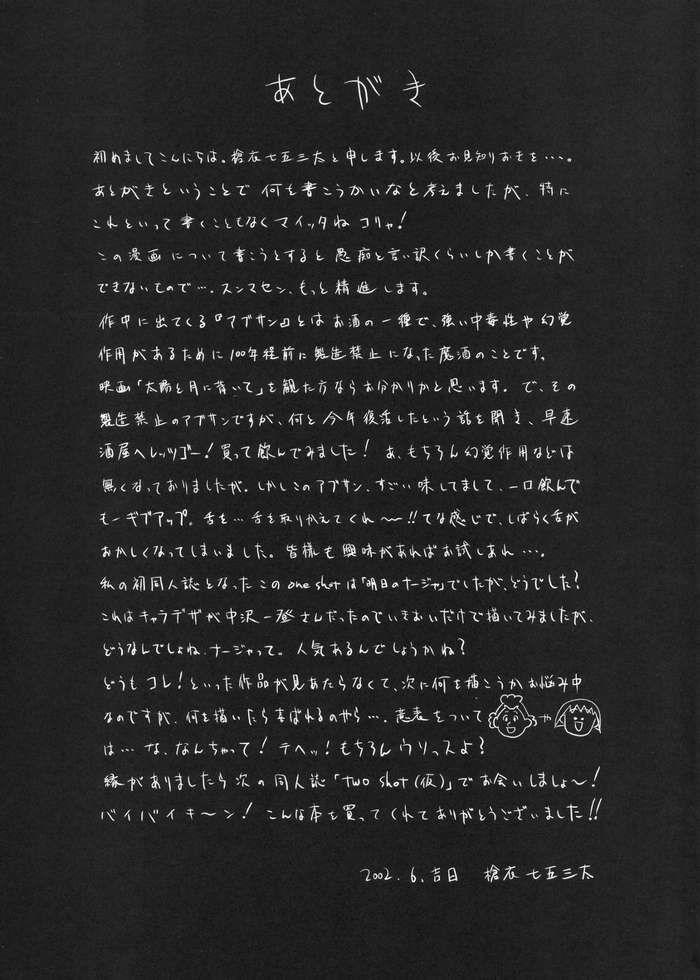 あとがき
初めましてこんにちは。槍衣七五三太と申します。以後お見知りおきを…。
あとがきということで何を書こうかいなと考えましたが、特に
これといって書くこともなくマイッタねコリャ!
この漫画について書こうとすると愚痴と言い訳くらいしか書くことが
できないもので…。スンマセン、もっと精進します。
作中に出てくる『アブサン』とはお酒の一種で、強い中毒性や幻覚
作用があるために100年程前に製造禁止になった魔酒のことです。
映画「太陽と月に背いて」を観た方ならお分かりかと思います。で、その
製造禁止のアブサンですが、何と今年復活したという話を聞き、早速
酒屋へレッツゴー!買って飲んでみました! あ、もちろん幻覚作用などは
無くなっておりましたが。しかしこのアブサン、すごい味してまして、一口飲んで
もーギブアップ。舌を…舌を取りかえてくれ〜〜!!てな感じで、しばらく舌が
おかしくなってしまいました。皆様も興味があればお試しあれ…。
私の初同人誌となったこのone shotは「明日のナージャ」でしたが、どうでした?
これはキャラデザが中沢一登さんだったのでいきおいだけで描いてみましたが、
どうなんでしょね、ナージャって。人気あるんでしょうかね?
どうもコレ!といった作品が見あたらなくて、次に何を描こうかお悩み中
なのですが、何を描いたら喜ばれるのやら…。意表をついて や
は…な、なんちゃって! テヘッ! もちろんウリッスよ?
縁がありましたら次の同人誌「two shot(仮)」でお会いしましょ〜!
バイバイキ〜ン! こんな本を買ってくれてありがとうございました!!
2002.6.吉日 槍衣七五三太